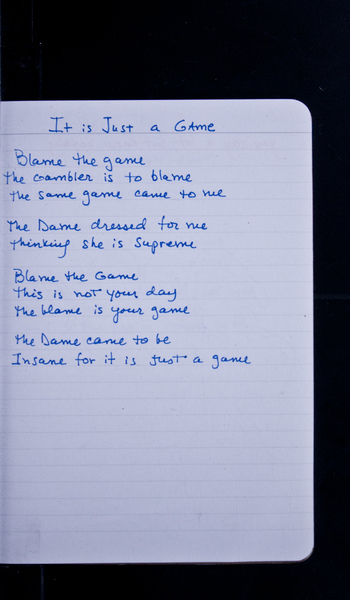 It is Just a Game
Blame the game
the Gambler is to blame
the same game came to me
the Dame dressed for me
thinking she is Supreme
Blame the Game
this is not your day
the blame is your game
the Dame came to be
Insane for it is just a game